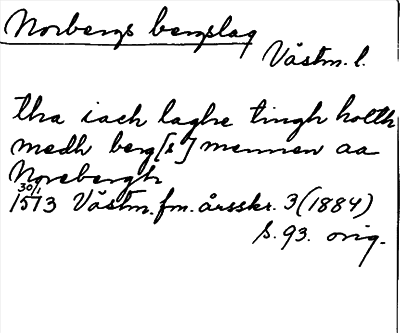 Norbergs bergslag
Västm. l.
tha iach laghe tingh holth
medh berg[s]mennen aa
Norebergh
30/1
1573 Västm. fm. årsskr. 3 (1884)
s. 93. orig.